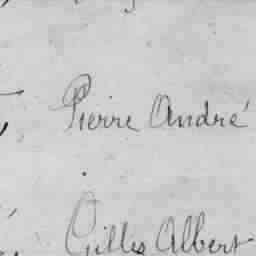 Pierre André
Gilles Albert